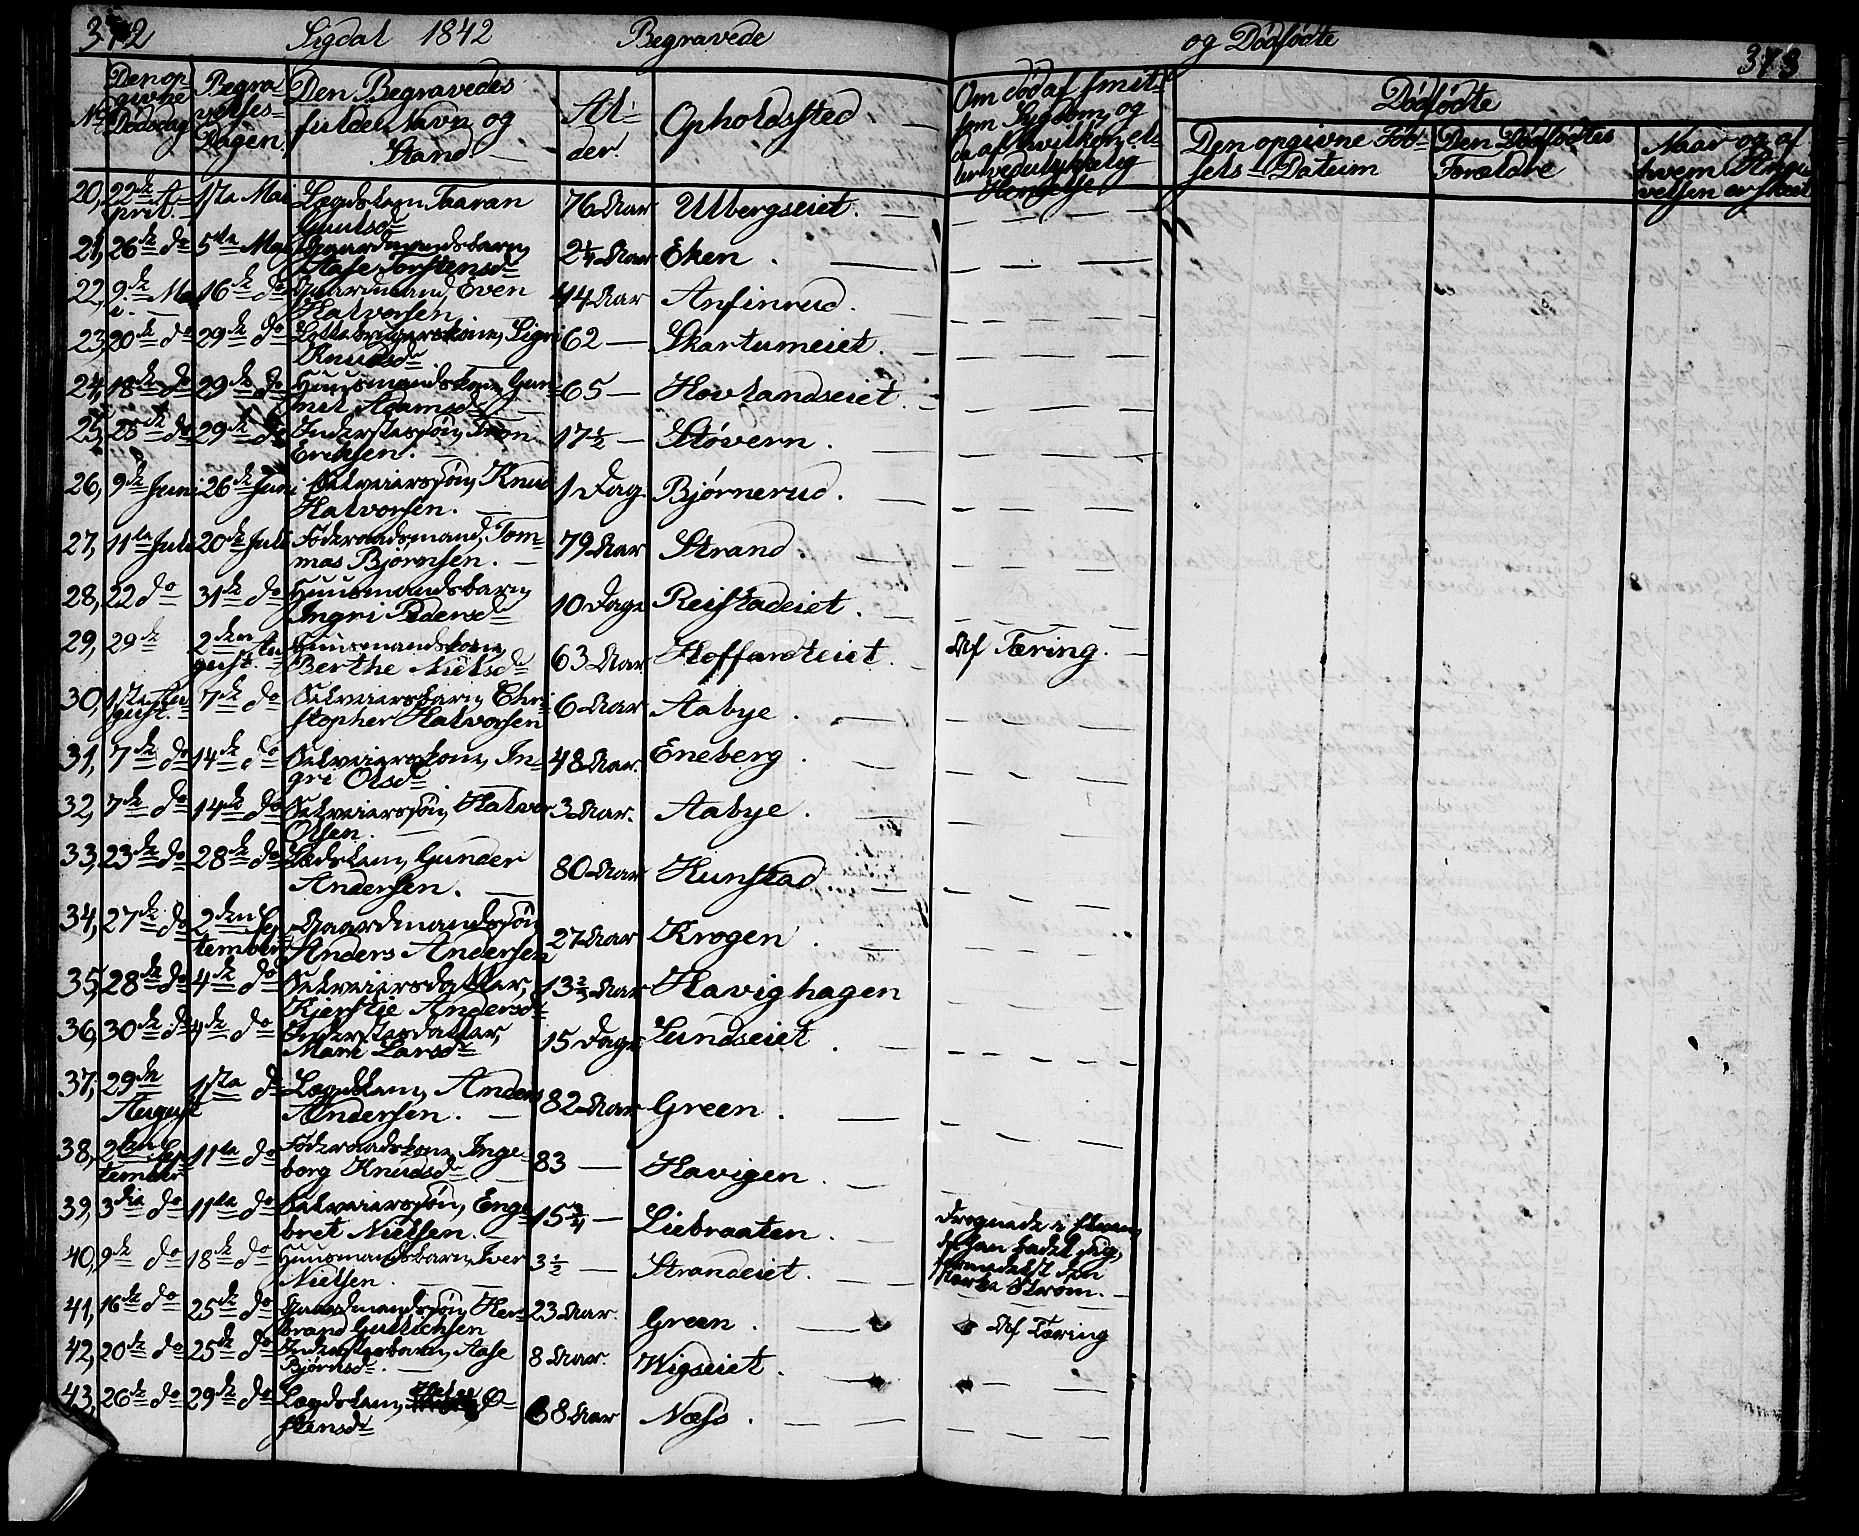 372 Sigdal 1842 Begravede og Dødfødte 373
No. Den opgivne Dødsdag Begravelses-Dagen Den Begravedes fulde Navn og Stand. Alder. Opholdssted Om død af smitsom Sygdom, og da af hvilken, eller ved ulykkelig Hændelse
Dødfødte
Den opgivne Fødsels-Datum Den Dødfødtes Forældre Naar og af hvem
20, 22de April. 1ste Mai Lægdslem Taaran Guulsd. 76 Aar Ulbergseiet.
21, 26de do 5te Mai Gaardmandsbarn, Aase Torstensd. 2¼ Aar Eken.
22, 9de Mai. 16de do Gaardmand, Even Halvorsen 44 Aar Anfinrud.
23, 20de do 29de do Sigri Knudsd. 62 — Skartumeiet.
24, 18de do 29de do Huusmandskone, Gunnil Adamsd. 65 — Hovlandseiet.
25, 25de do 29de do Inderstesøn, Tron Eriksen. 17½ — Støvern.
26, 9de Juni 26de Juni Selveiersøn, Knud Halvorsen. 1 Dag. Bjørnerud.
27, 11te Juli 20de Juli Føderaadsmand, Tommas Bjørnsen. 79 Aar Strand
28, 22 do 31te do Huusmandsbarn, Ingri Pedersd. 10 Dage Reistadeiet.
29, 29de 2den August. Huusmandskone, Berthe Nielsd. 63 Aar Hoffardeiet. Af Tæring.
30, 1ste August. 7de do Selveiersbarn, Christopher Halvorsen 6 Aar Aabye.
31, 7de do 14de do Selveierskone, Ingri Olsd. 48 Aar. Eneberg.
32, 7de do 14de do Selveiersøn, Halvor Olsen. 3 Aar. Aabye.
33, 23de do 28de do Lædslem, Gunder Andersen. 80 Aar Hunstad.
34, 27de do 2den September Gaardmandssøn Anders Andersen 27 Aar Krogen.
35, 28de do 4de do Selveiersdatter, Kjerstie Andersd. 13 Aar Havighagen
36, 30de do 4de do Inderstesdatter, Mari Larsd. 15 Dage Lundseiet.
37, 29de August 1ste do Lægdslem, Anders Andersen. 82 Aar Green.
38, 2den September 11te do Føderaadskone, Ingeborg Knudsd. 83 — Havigen.
39, 3die do 11te do Selveiersøn, Engebret Nielsen. 15¾ — Liebraaten. Drognede i Elven, da han badet sig, formedelst den stærke Strøm.
40, 9de do 18de do Huusmandsbarn, Iver Nielsen. 3½ — Strandeiet.
41, 16de do 25de do Gaardmandssøn, Herbrand Gulliksen 23 Aar. Green. Af Tæring
42, 20de do 25de do Inderstebarn, Aase Bjørnsd. 8 Aar. Wigseiet.
43, 26de do 29de do Lægdslem, Østensd. 68 Aar Næss.